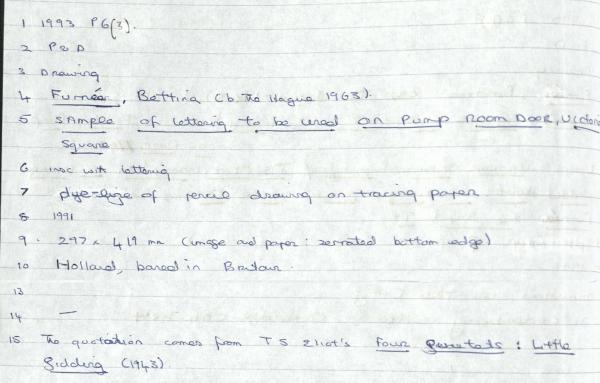 1 1993 PG(3).
2 P & D
3 Drawing
4 Furnée, Bettina (b. The Hague 1963).
5 Sample of lettering to be used on Pump Room Door, Victoria
Square
6 insc with lettering
7 dye-line of pencil drawing on tracing paper
8 1991
9. 297 x 419 mm (image and paper: serrated bottom edge)
10 Holland, based in Britain.
13
14 —
15 The quotation comes from T S Eliot's Four Quartets: Little
Gidding (1943).